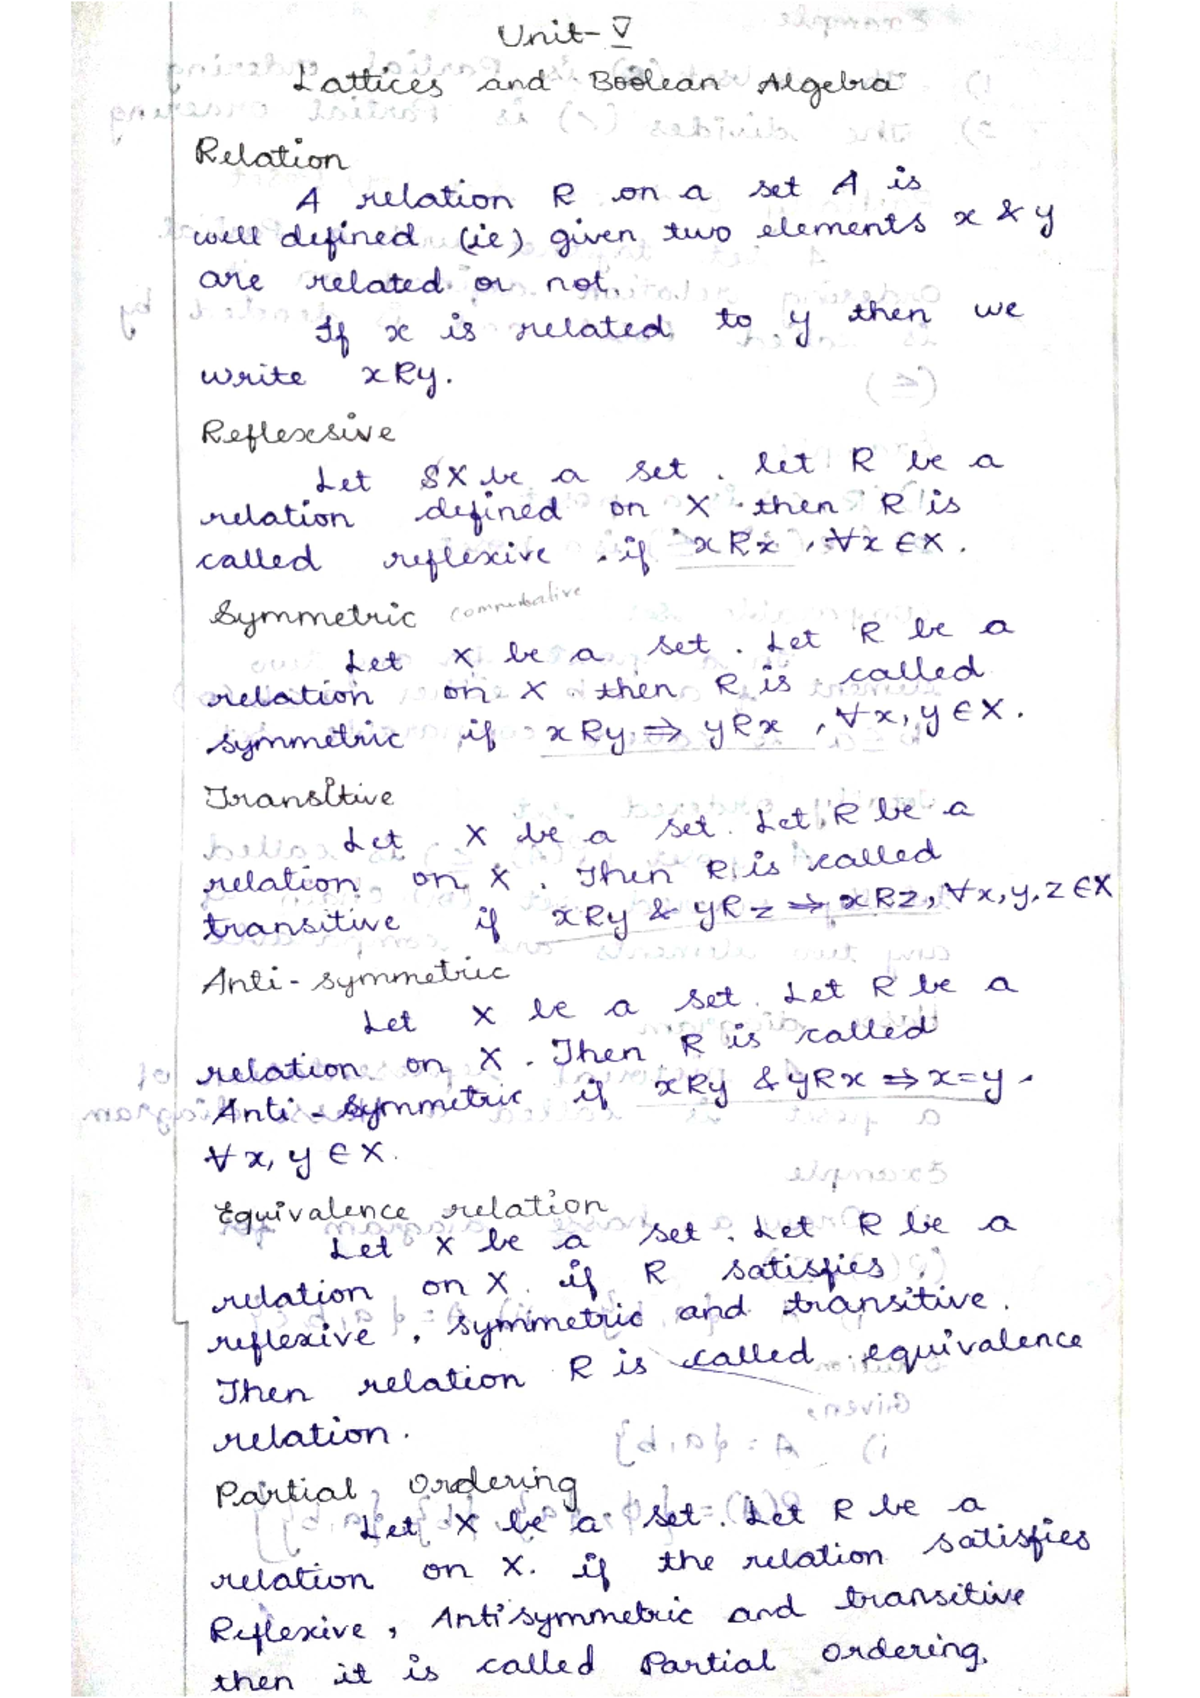 Unit-V
Lattices and Boolean Algebra
Relation
A relation R on a set A is
well defined (ie) given two elements x & y
are related or not.
If x is related to y then we
write xRy.
Reflexsive
Let SX be a set. let R be a
relation defined on X then R is
called reflexive if xRx, ∀x∈X.
Symmetric commutative
Let X be a set. Let R be a
relation on X then R is called
symmetric if xRy ⇒ yRx, ∀x, y∈X.
Transitive
Let X be a set. Let R be a
relation on X. Then R is called
transitive if xRy & yRz ⇒ xRz, ∀x,y,z∈X
Anti-symmetric
Let X be a set. Let R be a
relation on X. Then R is called
Anti-Symmetric if xRy & yRx ⇒ x=y.
∀x, y∈X.
Equivalence relation
Let X be a set. Let R be a
relation on X. if R satisfies
reflexive, symmetric and transitive.
Then relation R is called equivalence
relation.
Partial Ordering
Let X be a set. Let R be a
relation on X. if the relation satisfies
Reflexive, Antisymmetric and transitive
then it is called Partial ordering.